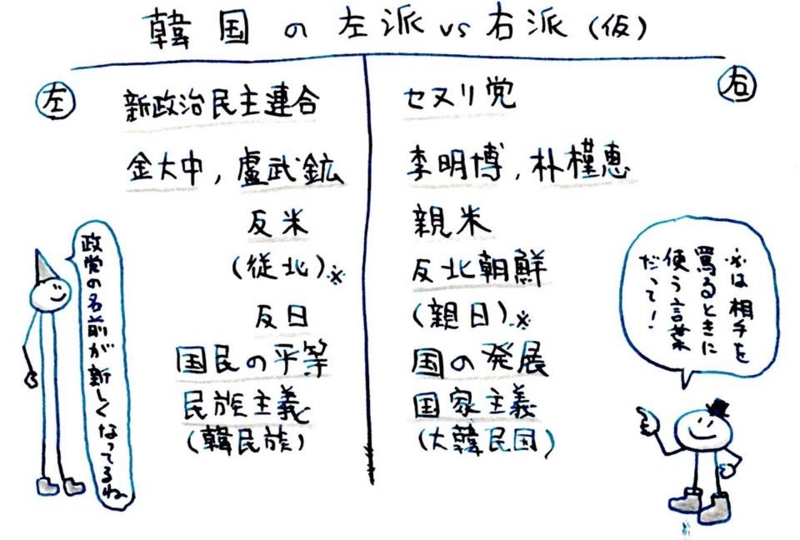 韓国の左派vs右派(仮)
左
新政治民主連合
金大中,盧武鉉
反米
(従北)※
反日
国民の平等
民族主義
(韓民族)
右
セヌリ党
李明博,朴槿恵
親米
反北朝鮮
(親日)※
国の発展
国家主義
(大韓民国)
政党の名前が新しくなってるね
※は相手を
罵るときに
使う言葉
だって!